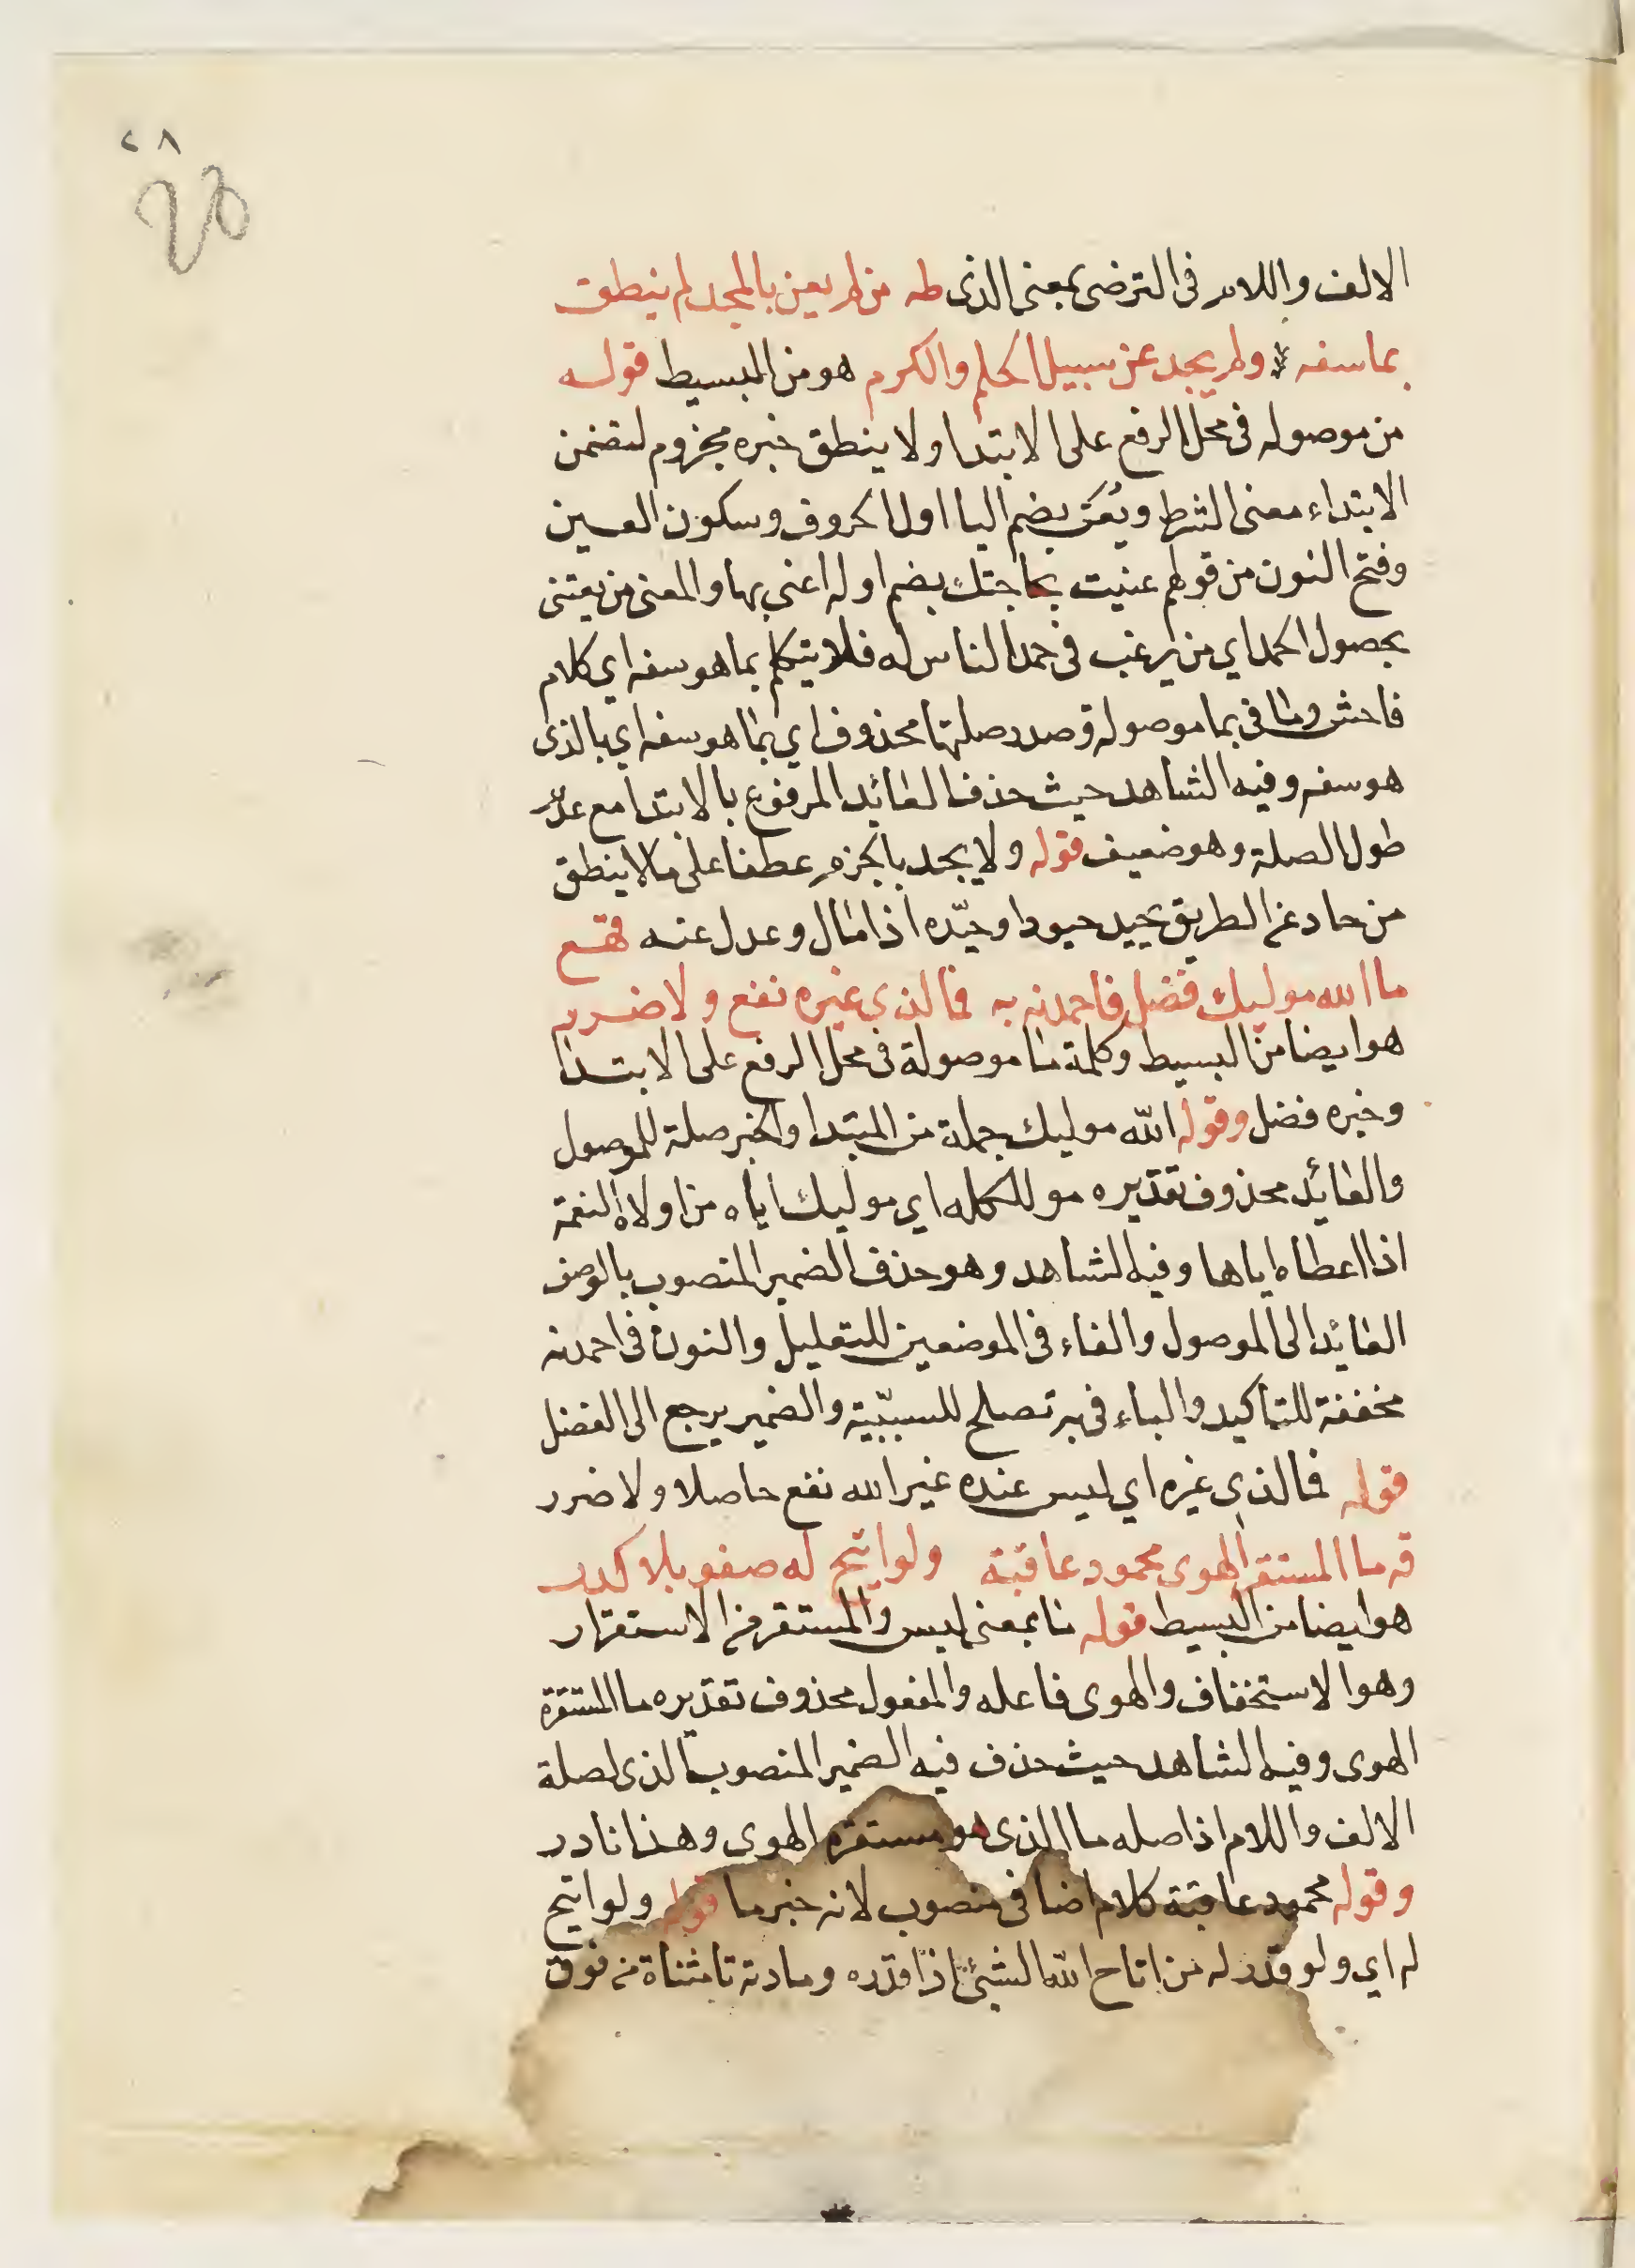 ٢٨
الالف واللام فى الترضى بمعنى الذى طه من لم يعن بالمجد لم ينطق
بما سفه ولم يجد عن سبيل الحلم والكرم هو من البسيط قوله
من موصوله فى محل الرفع على الابتدا ولا ينطق خبره مجزوم لتضمن
الابتداء معنى الشرط ويُعنَ بضم اليا اول الحروف وسكون العين
وفتح النون من قولهم عنيت بحاجتك بضم اوله اعنى بها والمعنى من يعتنى
بحصول الحمد اي من يرغب فى حمد الناس له فلا يتكلم بما هو سفه اي كلام
فاحش وما فى بما موصولة وصدر صلتها محذوف اي بما هو سفه اي بالذى
هو سفه وفيه الشاهد حيث حذف العائد المرفوع بالابتدا مع عدم
طول الصلة وهو ضعيف قوله ولا يجد بالجزم عطفا على ما لا ينطق
من حاد عن الطريق يحيد حيودا وحيّده اذا مال وعدل عنه فهع
ما الله موليك فضل فاحمدنه به فما لذى غيره نفع ولا ضرر
هو ايضا من البسيط وكلمة ما موصولة فى محل الرفع على الابتدا
وخبره فضل وقوله الله موليك جملة من المبتدا والخبر صلة للموصول
والعائد محذوف تقديره موليكه اي موليك اياه من اولاه النعمة
اذا اعطاه اياها وفيه الشاهد وهو حذف الضمير المنصوب بالوصف
العائد الى الموصول والفاء فى الموضعين للتعليل والنون فى احمدنه
مخففة للتاكيد والباء فى به تصلح للسببيّة والضمير يرجع الى الفضل
قوله فما لذي غيره اي ليس عنده غير الله نفع حاصلا ولا ضرر
قه ما المستفز الهوى محمود عاقبة ولو اتيح له صفو بلا كدر
هو ايضا من البسيط قوله ما بمعنى ليس والمستفز من الاستفزار
وهو الاستخفاف والهوى فاعله والمفعول محذوف تقديره ما المستفزة
الهوى وفيه الشاهد حيث حذف فيه الضمير المنصوب الذى لصلة
الالف واللام اذ اصله ما الذى هو مستفزه الهوى وهذا نادر
وقوله محمود عاقبة كلام اضافى منصوب لانه خبر ما قوله ولو اتيح
له اي ولو قدر له من اتاح الله الشئ اذا قدره ومادته تا مثناة من فوق